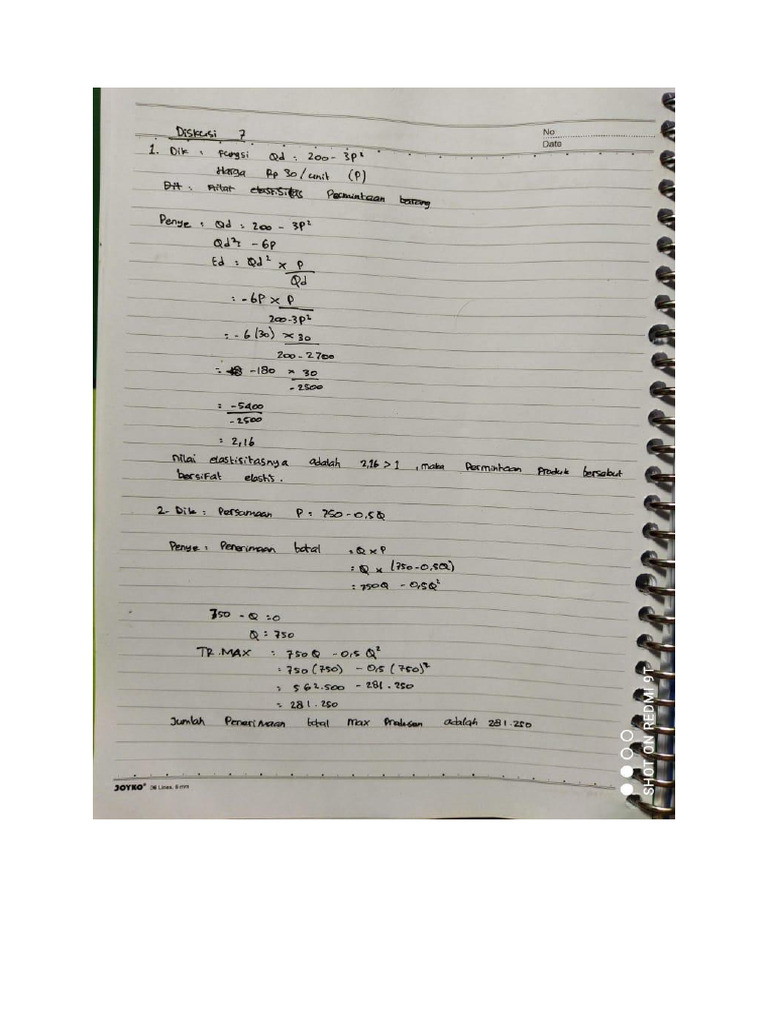 Diskusi 7
No
Date
1. Dik : Fungsi Qd : 200 - 3P²
Harga Rp 30/unit (P)
Dit : Nilai elastisitas Permintaan barang
Penye : Qd = 200 - 3P²
Qd² = - 6P
Ed = Qd² x P
Qd
= - 6P x P
200-3P²
= - 6 (30) x 30
200 - 2700
= -180 x 30
-2500
= -5400
-2500
= 2,16
Nilai elastisitasnya adalah 2,16 > 1 , maka Permintaan Produk bersebut
bersifat elastis.
2- Dik : Persamaan P = 750 - 0,5Q
Penye : Penerimaan total = Q x P
= Q x (750 - 0,5Q)
= 750Q - 0,5Q²
750 - Q = 0
Q = 750
TR.MAX = 750 Q - 0,5 Q²
= 750 (750) - 0,5 (750)²
= 562.500 - 281.250
= 281.250
Jumlah Penerimaan total Max adalah 281.250
JOYKO® 36 Lines, 8 mm
SHOT ON REDMI 9T